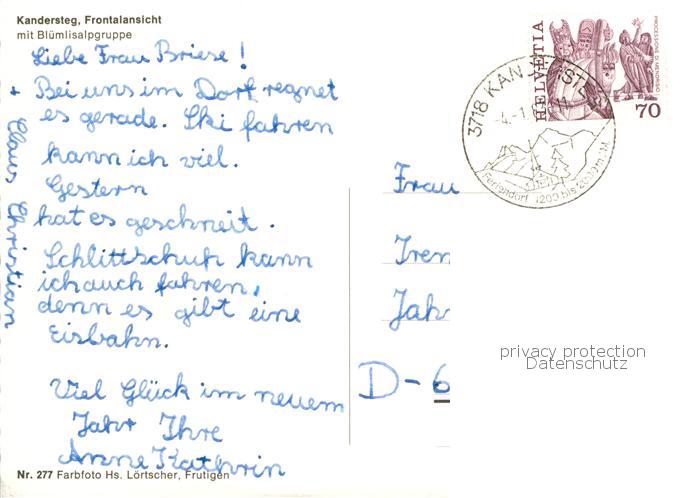 Kandersteg, Frontalansicht
mit Blümlisalpgruppe
Liebe Frau Briese!
Bei uns im Dorf regnet
es gerade. Ski fahren
kann ich viel.
Gestern
hat es geschneit.
Schlittschuh kann
ich auch fahren,
denn es gibt eine
Eisbahn.
Viel Glück im neuem
Jahr Ihre
Anne Kathrin
+ Claus Christian
Nr. 277 Farbfoto Hs. Lörtscher, Frutigen
HELVETIA
70
3718 KAN
-4.-1
Feriendorf 1200 bis
Frau
Iren
Jahr
D-6
privacy protection
Datenschutz